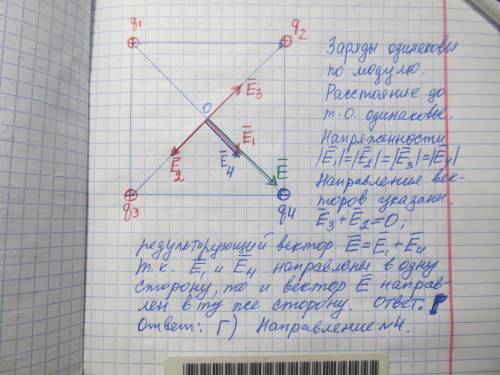 q1
q2
Заряды одинаковы
по модулю.
Расстояние до
т.О. одинаковые.
Напряженности
|E̅1|=|E̅2|=|E̅3|=|E̅4|
Направления век-
торов указаны.
E̅3+E̅2=0,
O
E̅3
E̅1
E̅2
E̅4
E̅
q3
q4
результирующий вектор E̅=E̅1+E̅4
т.к. E̅1 и E̅4 направлены в одну
сторону, то и вектор E̅ направ-
лен в ту же сторону. Ответ.
Ответ: Г) Направление №4.